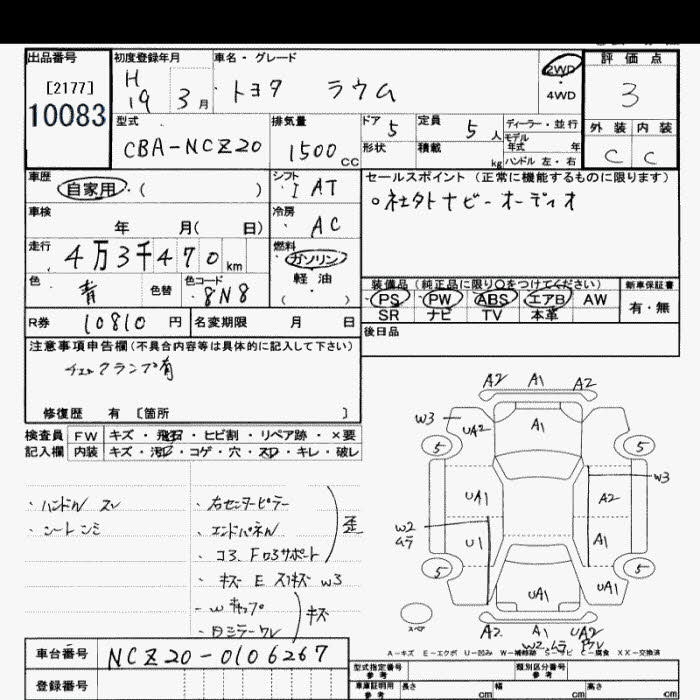 出品番号 初度登録年月 車名・グレード 評価点
[2177] H 2WD
10083 19 3月 トヨタ ラウム 4WD 3
型式 排気量 ドア 5 定員 5人 ディーラー・並行 外装 内装
CBA-NCZ20 1500cc 形状 積載 kg モデル年式 年 C C
ハンドル 左・右
車歴 シフト セールスポイント（正常に機能するものに限ります）
自家用・（ ） I AT
車検 冷房 ○社外ナビ-オーディオ
年 月( 日) AC
走行 燃料
4万3千470km ガソリン
軽油
( )
色 色替 色コード 装備品（純正品に限り○をつけてください） 新車保証書
青 8N8 PS PW ABS エアB AW 有・無
SR ナビ TV 本革
R券 10810円 名変期限 月 日 後日品
注意事項申告欄（不具合内容等は具体的に記入して下さい）
チェックランプ有
修復歴 有 〔箇所 〕
検査員 FW キズ・飛石・ヒビ割・リペア跡・×要
記入欄 内装 キズ・汚レ・コゲ・穴・スレ・キレ・破レ
・ハンドル スレ
・シートシミ
・右センターピラー
・エンドパネル
・コア F ロアサポート 歪
・キズ E スリキズ W3
・W キャップ
・ドアミラーウレ キズ
A2 A1 A2
W3 UA2 A1
5 5
W3
UA1 A2
W2 ムラ U1 A1
5 5
UA1 UA1
スペア
A2 A1 UA2
W2ムラ ウレ
A-キズ E-エクボ U-凹み W-補修跡 S-サビ C-腐食 XX-交換済
車台番号 NCZ20-0106267
登録番号
型式指定番号 参考 類別区分番号 参考
車庫証明用 参考 長さ cm 幅 cm 高さ cm